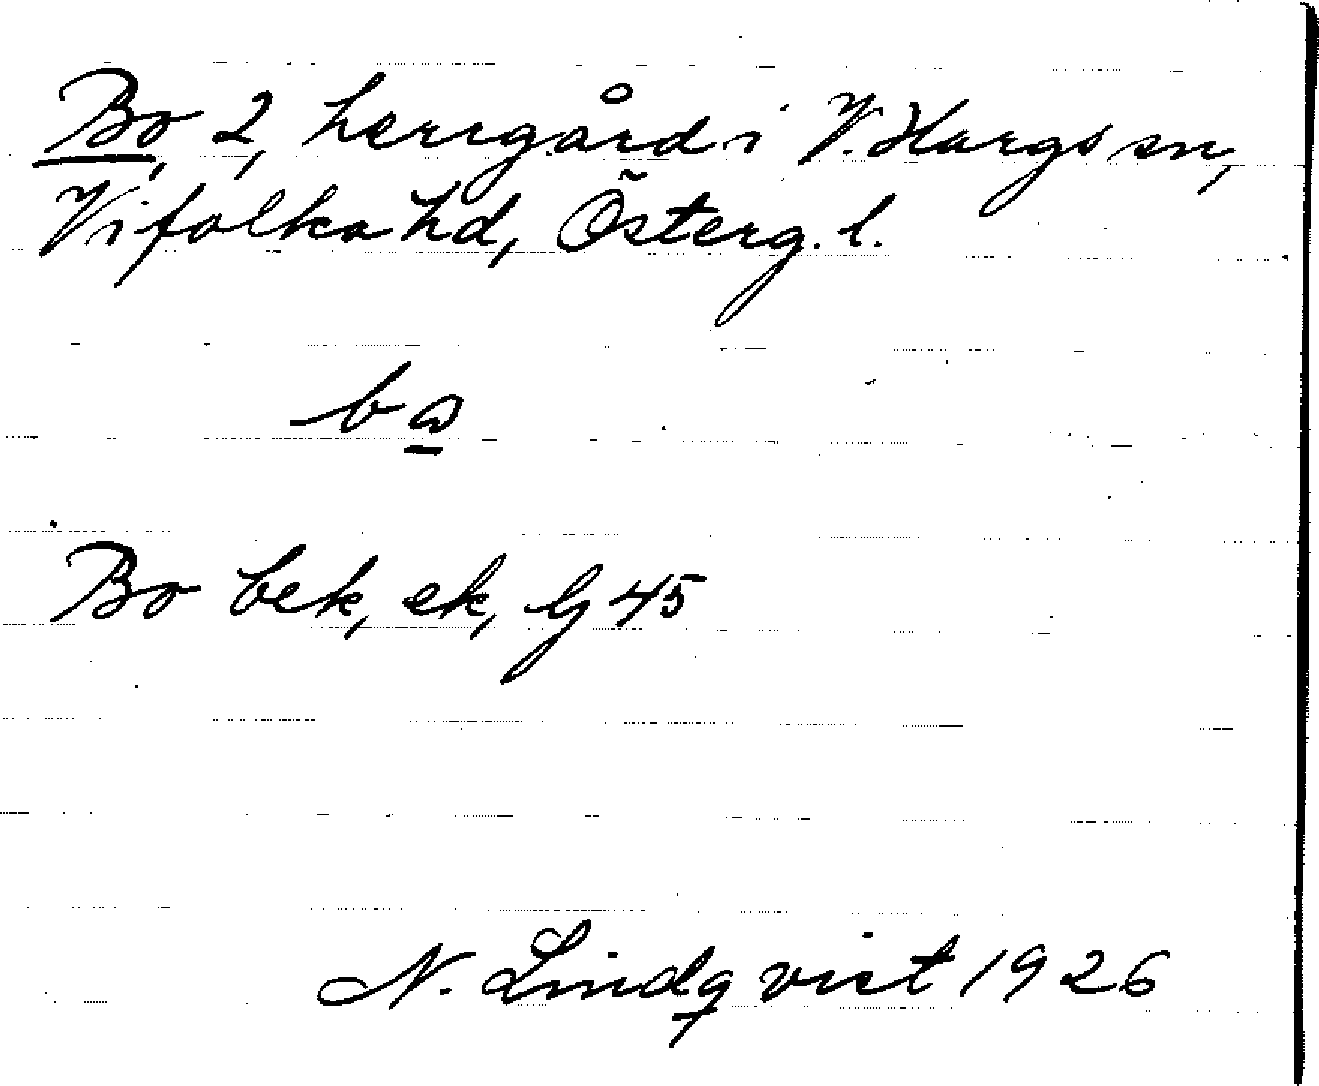 Bo, 2, herrgård i V. Hargs sn,
Vifolka hd, Österg. l.
bo
Bo bek, ek, Gj 45
N. Lindqvist 1926